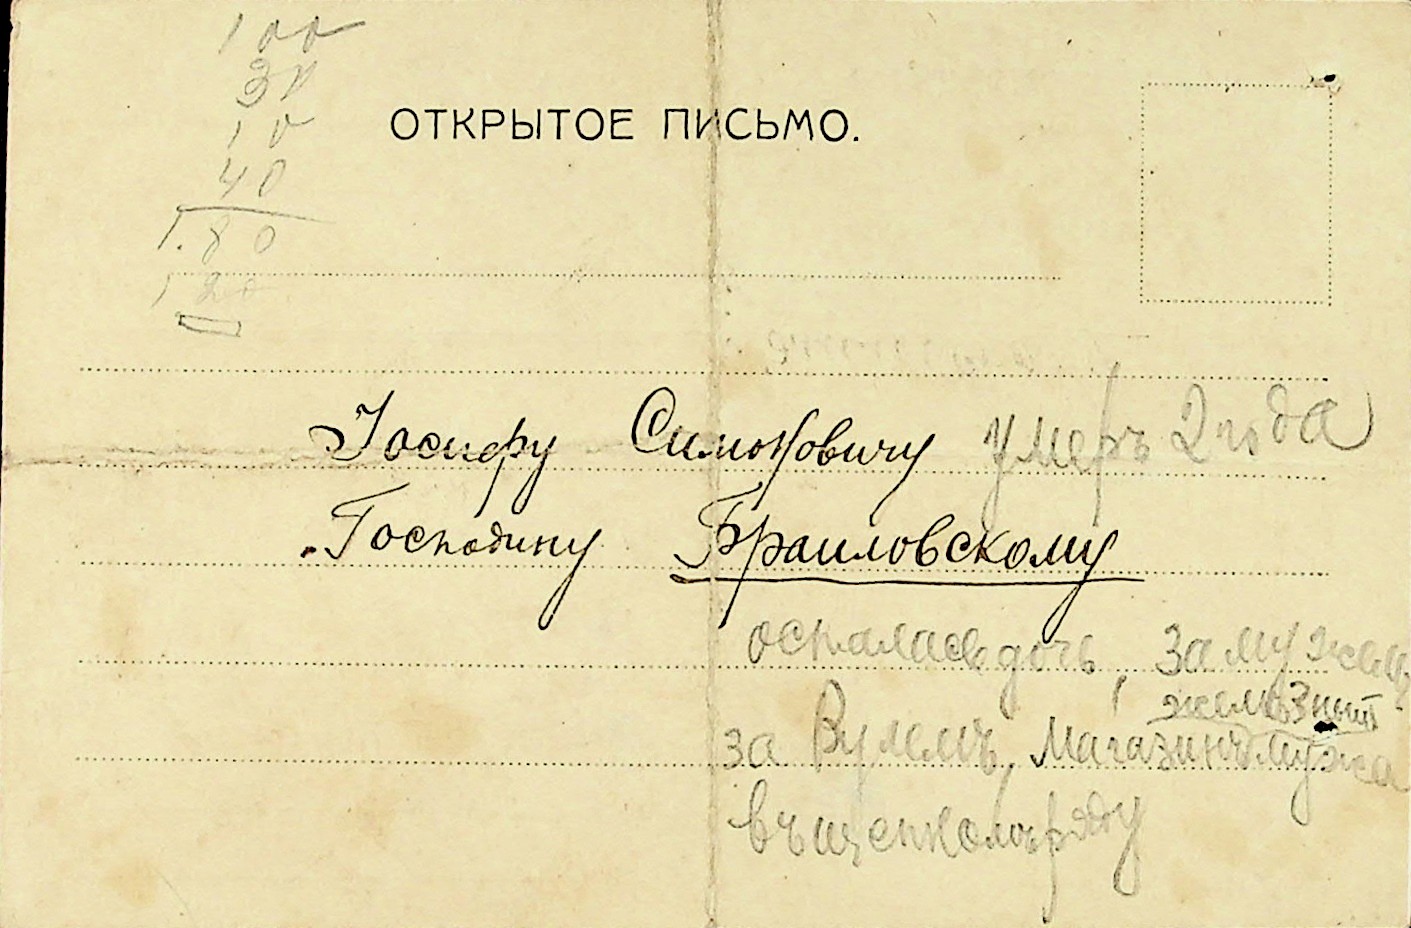 100
30
10
40
1.80
1 20
ОТКРЫТОЕ ПИСЬМО.
Іосифу Симоновичу умеръ 2 года
Господину Браиловскому
осталась дочь, замужем
за Вулемъ, магазинъ мужа
желѣзный
въ щепномъ ряду